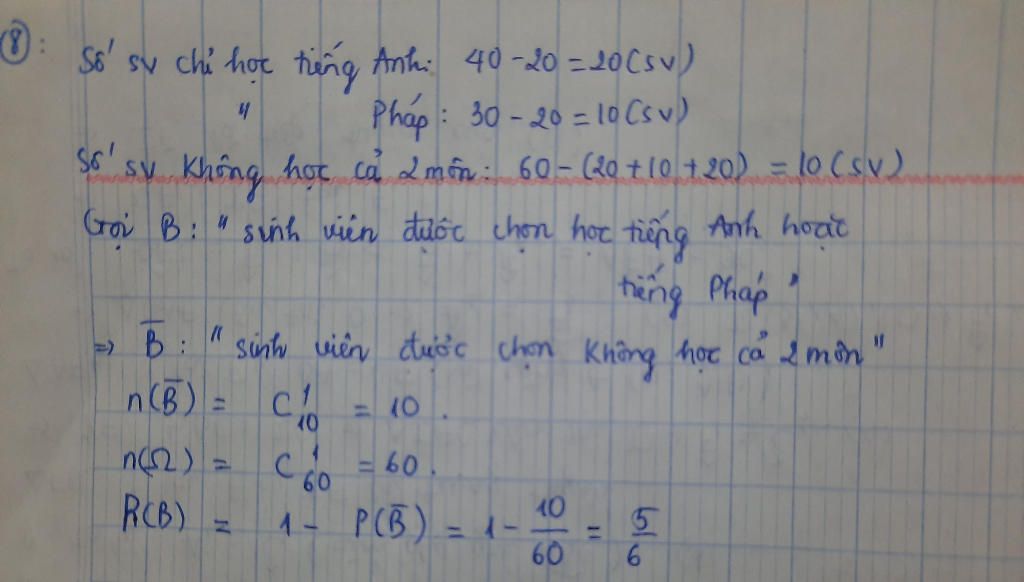 ⑧: Số sv chỉ học tiếng Anh: 40 - 20 = 20 (sv)
" Pháp: 30 - 20 = 10 (sv)
Số sv không học cả 2 môn: 60 - (20 + 10 + 20) = 10 (sv)
Gọi B: " sinh viên được chọn học tiếng Anh hoặc
tiếng Pháp "
=> B̅: " sinh viên được chọn không học cả 2 môn "
n(B̅) = C¹₁₀ = 10.
n(Ω) = C¹₆₀ = 60.
P(B) = 1 - P(B̅) = 1 - 10/60 = 5/6